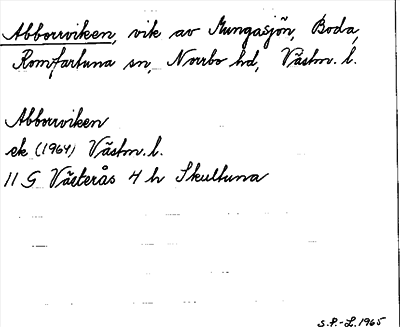 Abborrviken, vik av Gungasjön, Boda,
Romfartuna sn, Norrbo hd, Västm. l.
Abborrviken
ek (1964) Västm. l.
11 G Västerås 4 h Skultuna
S.P.-L. 1965